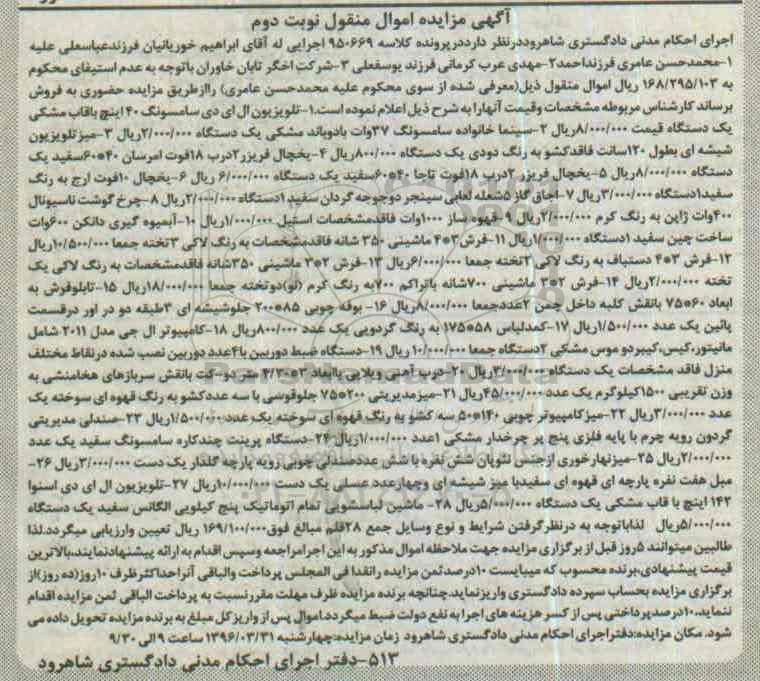 آگهی مزایده اموال منقول نوبت دوم
اجرای احکام مدنی دادگستری شاهروددرنظر دارددرپرونده کلاسه ۹۵۰۶۶۹ اجرایی له آقای ابراهیم خوریانیان فرزندعباسعلی علیه
۱-محمدحسن عامری فرزنداحمد۲-مهدی عرب کرمانی فرزند یوسفعلی ۳-شرکت اخگر تابان خاوران باتوجه به عدم استیفای محکوم
به ۱۶۸/۲۹۵/۱۰۳ ریال اموال منقول ذیل(معرفی شده از سوی محکوم علیه محمدحسن عامری) رااز طریق مزایده حضوری به فروش
برساند کارشناس مربوطه مشخصات وقیمت آنهارا به شرح ذیل اعلام نموده است.۱-تلویزیون ال ای دی سامسونگ ۴۰ اینچ باقاب مشکی
یک دستگاه قیمت ۸/۰۰۰/۰۰۰ریال ۲-سینما خانواده سامسونگ ۳۷وات بادوباند مشکی یک دستگاه ۲/۰۰۰/۰۰۰ریال ۳-میز تلویزیون
شیشه ای بطول ۱۲۰سانت فاقدکشو به رنگ دودی یک دستگاه ۸۰۰/۰۰۰ریال ۴-یخچال فریزر۲درب ۱۸فوت امرسان ۴۰*۶۰سفید یک
دستگاه ۸/۰۰۰/۰۰۰ریال ۵-یخچال فریزر ۲درب ۱۸فوت تاجا ۴۰*۶۰سفید یک دستگاه ۶/۰۰۰/۰۰۰ ریال ۶-یخچال ۱۰فوت ارج به رنگ
سفید۱دستگاه ۳/۰۰۰/۰۰۰ریال ۷-اجاق گاز ۵شعله لعابی سینجر دوجوجه گردان سفید ۱دستگاه ۲/۰۰۰/۰۰۰ریال ۸-چرخ گوشت ناسیونال
۴۰۰وات ژاپن به رنگ کرم ۲/۰۰۰/۰۰۰ریال ۹-قهوه ساز ۱۰۰۰وات فاقدمشخصات استیل ۱/۰۰۰/۰۰۰ریال ۱۰-آبمیوه گیری دانکن ۶۰۰وات
ساخت چین سفید ۱دستگاه ۱/۰۰۰/۰۰۰ریال ۱۱-فرش۳*۴ ماشینی ۳۵۰ شانه فاقدمشخصات به رنگ لاکی ۳تخته جمعا ۱۰/۵۰۰/۰۰۰ریال
۱۲-فرش ۳*۴ دستباف به رنگ لاکی ۲تخته جمعا ۶/۰۰۰/۰۰۰ریال ۱۳-فرش ۲*۳ ماشینی ۳۵۰شانه فاقدمشخصات به رنگ لاکی یک
تخته ۲/۰۰۰/۰۰۰ریال ۱۴-فرش ۲*۳ ماشینی ۷۰۰شانه باتراکم ۷۰۰به رنگ کرم (نو)دوتخته جمعا ۱۸/۰۰۰/۰۰۰ریال ۱۵-تابلوفرش به
ابعاد ۶۰*۷۵ بانقش کلبه داخل چمن ۲عددجمعا ۸/۰۰۰/۰۰۰ریال ۱۶- بوفه چوبی ۸۵*۲۰۰ جلوشیشه ای ۳طبقه دو در اور درقسمت
پائین یک عدد ۱/۵۰۰/۰۰۰ریال ۱۷-کمدلباس ۵۸*۱۷۵ به رنگ گردویی یک عدد ۸۰۰/۰۰۰ریال ۱۸-کامپیوتر ال جی مدل ۲۰۱۱ شامل
مانیتور،کیس،کیبردو موس مشکی ۲دستگاه جمعا ۱۰/۰۰۰/۰۰۰ ریال ۱۹-دستگاه ضبط دوربین با۴عدد دوربین نصب شده درنقاط مختلف
منزل فاقد مشخصات یک دستگاه ۳/۰۰۰/۰۰۰ریال ۲۰-درب آهنی ویلایی باابعاد ۳*۴/۳۰ متر دو لت بانقش سربازهای هخامنشی به
وزن تقریبی ۱۵۰۰کیلوگرم یک عدد ۴۵/۰۰۰/۰۰۰ریال ۲۱-میزمدیریتی ۲۰۰*۷۵ جلوقوسی با سه عددکشو به رنگ قهوه ای سوخته یک
عدد ۳/۰۰۰/۰۰۰ریال ۲۲-میزکامپیوتر چوبی ۱۴۰*۵۰ سه کشو به رنگ قهوه ای سوخته یک عدد ۱/۵۰۰/۰۰۰ریال ۲۳-صندلی مدیریتی
گردون رویه چرم با پایه فلزی پنج پر چرخدار مشکی ۱عدد ۱/۰۰۰/۰۰۰ریال ۲۴-دستگاه پرینت چندکاره سامسونگ سفید یک عدد
۲/۰۰۰/۰۰۰ریال ۲۵-میزنهارخوری ازجنس نئوپان شش نفره با شش عددصندلی چوبی رویه پارچه گلدار یک دست ۳/۰۰۰/۰۰۰ریال ۲۶-
مبل هفت نفره پارچه ای قهوه ای سفیدبا میز شیشه ای وچهارعدد عسلی یک دست ۱۰/۰۰۰/۰۰۰ریال ۲۷-تلویزیون ال ای دی اسنوا
۱۴۲ اینچ با قاب مشکی یک دستگاه ۵/۰۰۰/۰۰۰ریال ۲۸- ماشین لباسشویی تمام اتوماتیک پنج کیلویی الگانس سفید یک دستگاه
۵/۰۰۰/۰۰۰ریال لذاباتوجه به درنظرگرفتن شرایط و نوع وسایل جمع ۲۸قلم مبالغ فوق۱۶۹/۱۰۰/۰۰۰ ریال تعیین وارزیابی میگردد.لذا
طالبین میتوانند ۵روز قبل از برگزاری مزایده جهت ملاحظه اموال مذکور به این اجرامراجعه وسپس اقدام به ارائه پیشنهادنمایند،بالاترین
قیمت پیشنهادی،برنده محسوب که میبایست ۱۰درصدثمن مزایده رانقدا فی المجلس پرداخت والباقی آنراحداکثر ظرف ۱۰روز(ده روز)از
برگزاری مزایده بحساب سپرده دادگستری واریزنماید.چنانچه برنده مزایده ظرف مهلت مقررنسبت به پرداخت الباقی ثمن مزایده اقدام
ننماید،۱۰درصدپرداختی پس از کسر هزینه های اجرا به نفع دولت ضبط میگردد.اموال پس از واریز کل مبلغ به برنده مزایده تحویل داده می
شود. مکان مزایده:دفتراجرای احکام مدنی دادگستری شاهرود زمان مزایده:چهارشنبه ۱۳۹۶/۰۳/۳۱ ساعت ۹ الی ۹/۳۰
۵۱۳-دفتر اجرای احکام مدنی دادگستری شاهرود